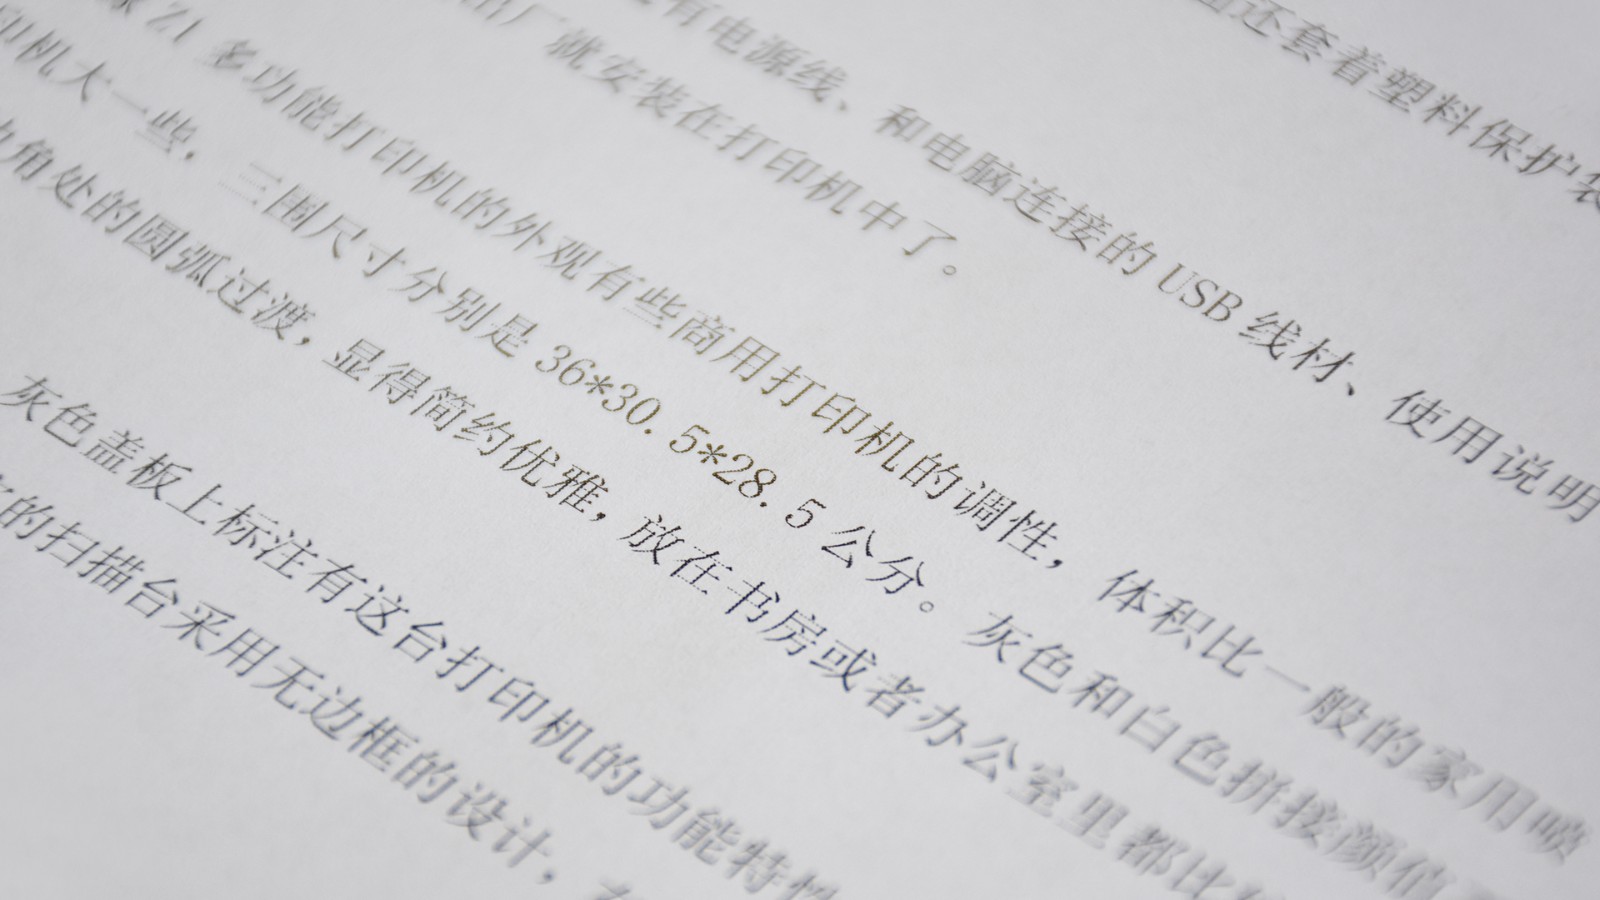 还套着塑料保护袋
有电源线、和电脑连接的 USB 线材、使用说明
出厂就安装在打印机中了。
Z1 多功能打印机的外观有些商用打印机的调性，体积比一般的家用喷
印机大一些，三围尺寸分别是 36*30.5*28.5 公分。灰色和白色拼接颜值
边角处的圆弧过渡，显得简约优雅，放在书房或者办公室里都比较
灰色盖板上标注有这台打印机的功能特性
的扫描台采用无边框的设计，